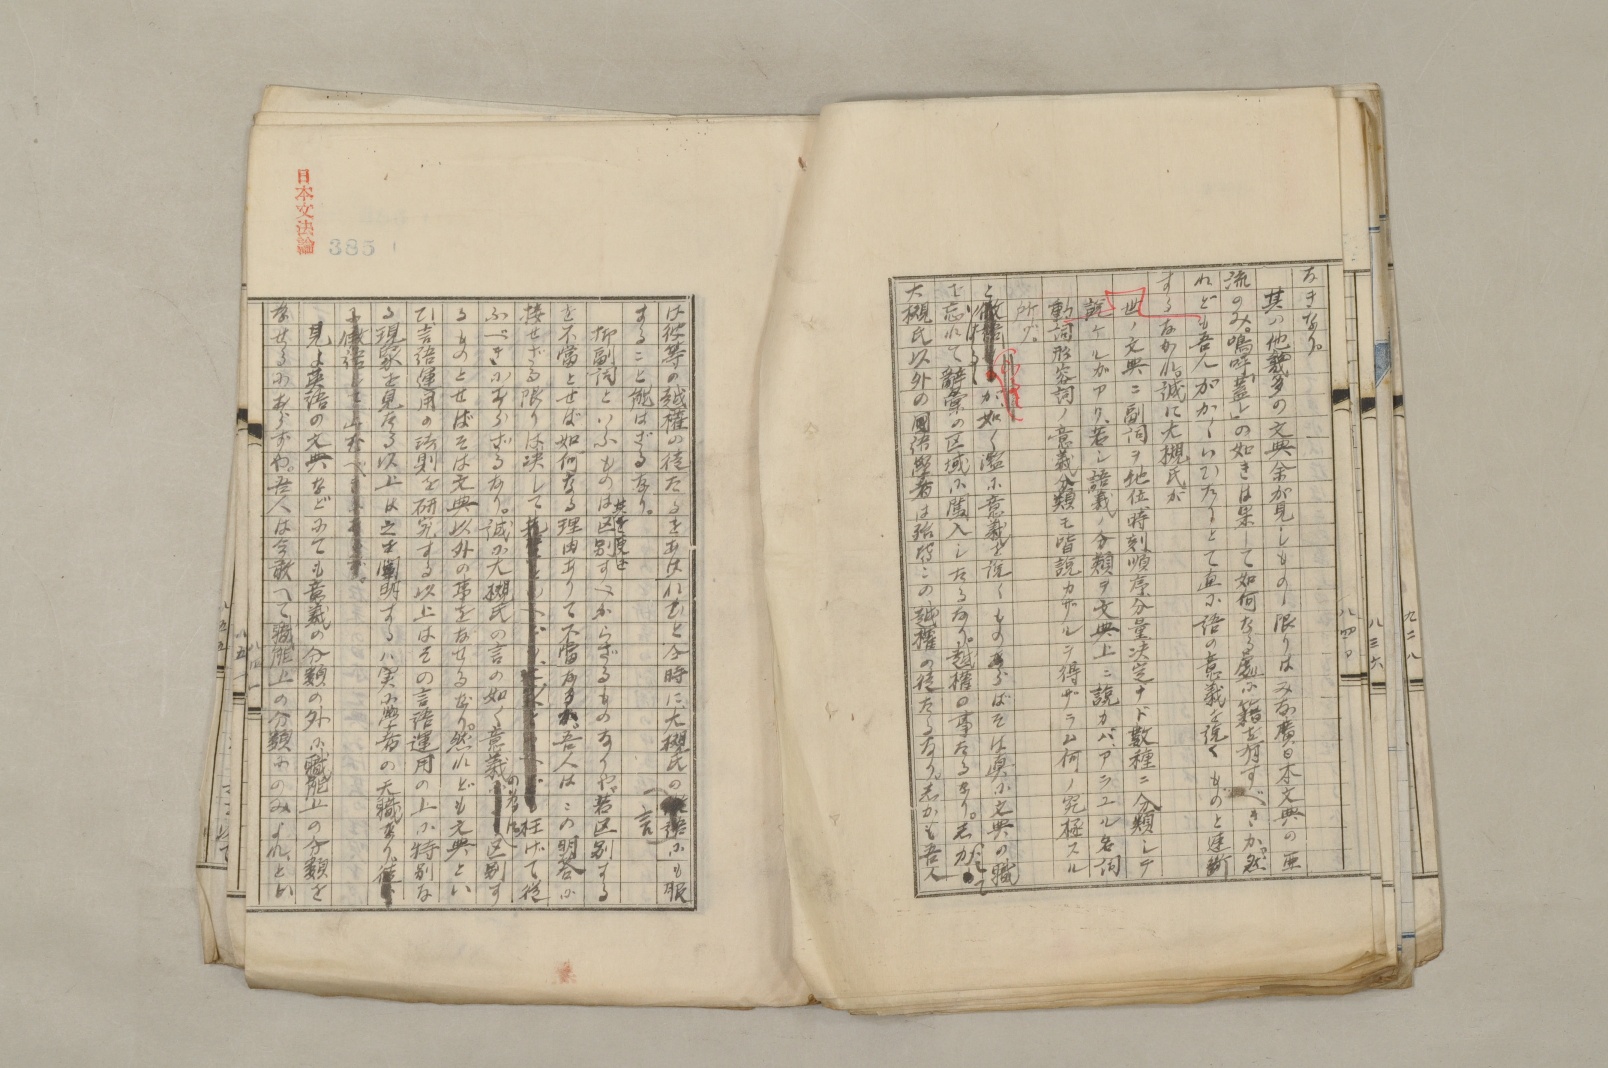 なきなり。
其の他幾多の文典余が見しものゝ限りはみな廣日本文典の亜
流のみ。嗚呼「蓋し」の如きは果して如何なる處に籍を有すべきか。然
れども吾人がかくいひたりとて直に語の意義を説くものと速斷
するなかれ。誠に大槻氏が
世ノ文典ニ副詞ヲ地位時刻順序分量決定ナド數種ニ分類シテ
説ケルガアリ、若シ語義ノ分類ヲ文典上ニ説カバ、アラユル名詞
動詞形容詞ノ意義分類モ皆説カザルヲ得ザラム何ノ究極スル
所ゾ。
といはるゝが如く濫に意義を説くものならばそは眞に文典の職
を忘れて辭彙の区域に闖入したるなり。越権の事たるなり。しかして
大槻氏以外の国語學者は殆皆この越権の徒たるなり。しかも吾人
は彼等の越権の徒たるをあはれむと分時に大槻氏の言にも服
すること能はざるなり。
抑副詞といふものは其を更に区別すべからざるものなりや。若区別する
を不當とせば如何なる理由ありて不當なるか、吾人はこの明答に
接せざる限りは決して枉げて従
ふべきにあらざるなり。誠に大槻氏の言の如く意義の為に区別す
るものとせばそは文典以外の事をなせるなり。然れども文典とい
ひ、言語運用の法則を研究する以上はその言語運用の上に特別な
る現象を見たる以上は之を闡明するは実に學者の天職なり。
見よ英語の文典などにても意義の分類の外に職能上の分類を
なせるにあらずや。吾人は今敢へて職能上の分類にのみよれとい
日本文法論
385
九二八
八三六
八四〇